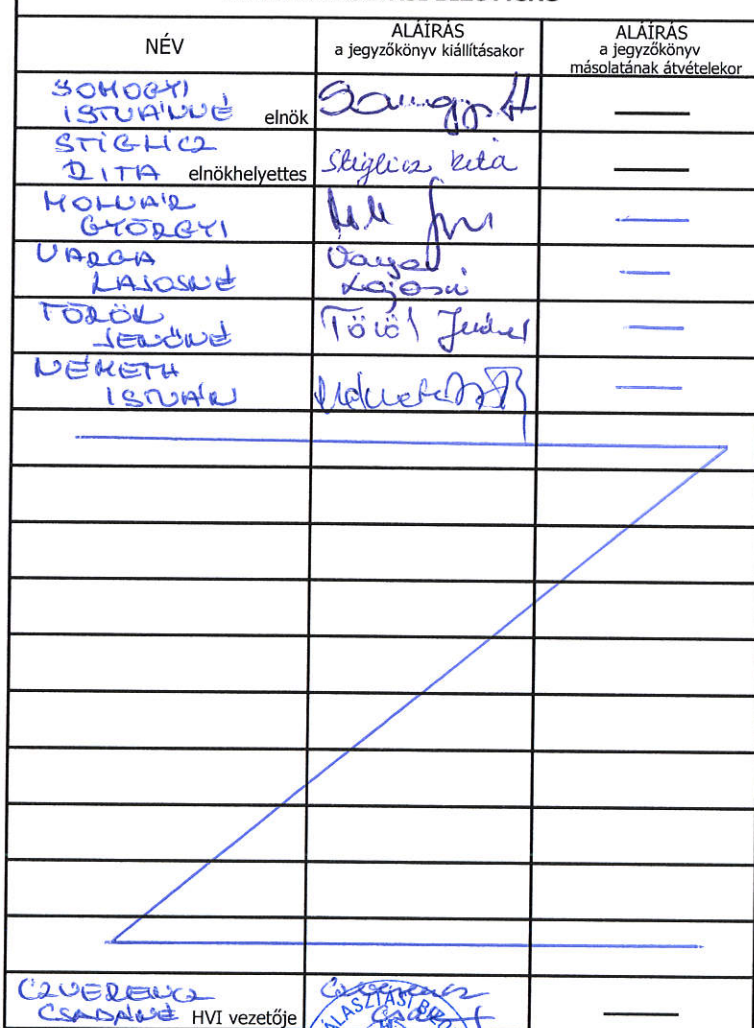 NÉV
ALÁÍRÁS
a jegyzőkönyv kiállításakor
ALÁÍRÁS
a jegyzőkönyv
másolatának átvételekor
SOMOGYI
ISTVÁNNÉ elnök
STIGLICZ
RITA elnökhelyettes Stiglicz Rita
MOLNÁR
GYÖRGYI
VARGA Varga
LAJOSNÉ Lajosné
TÖRÖK Török Jenőné
JENŐNÉ
NÉMETH
ISTVÁN
CZVERENCZ
CSABÁNÉ HVI vezetője